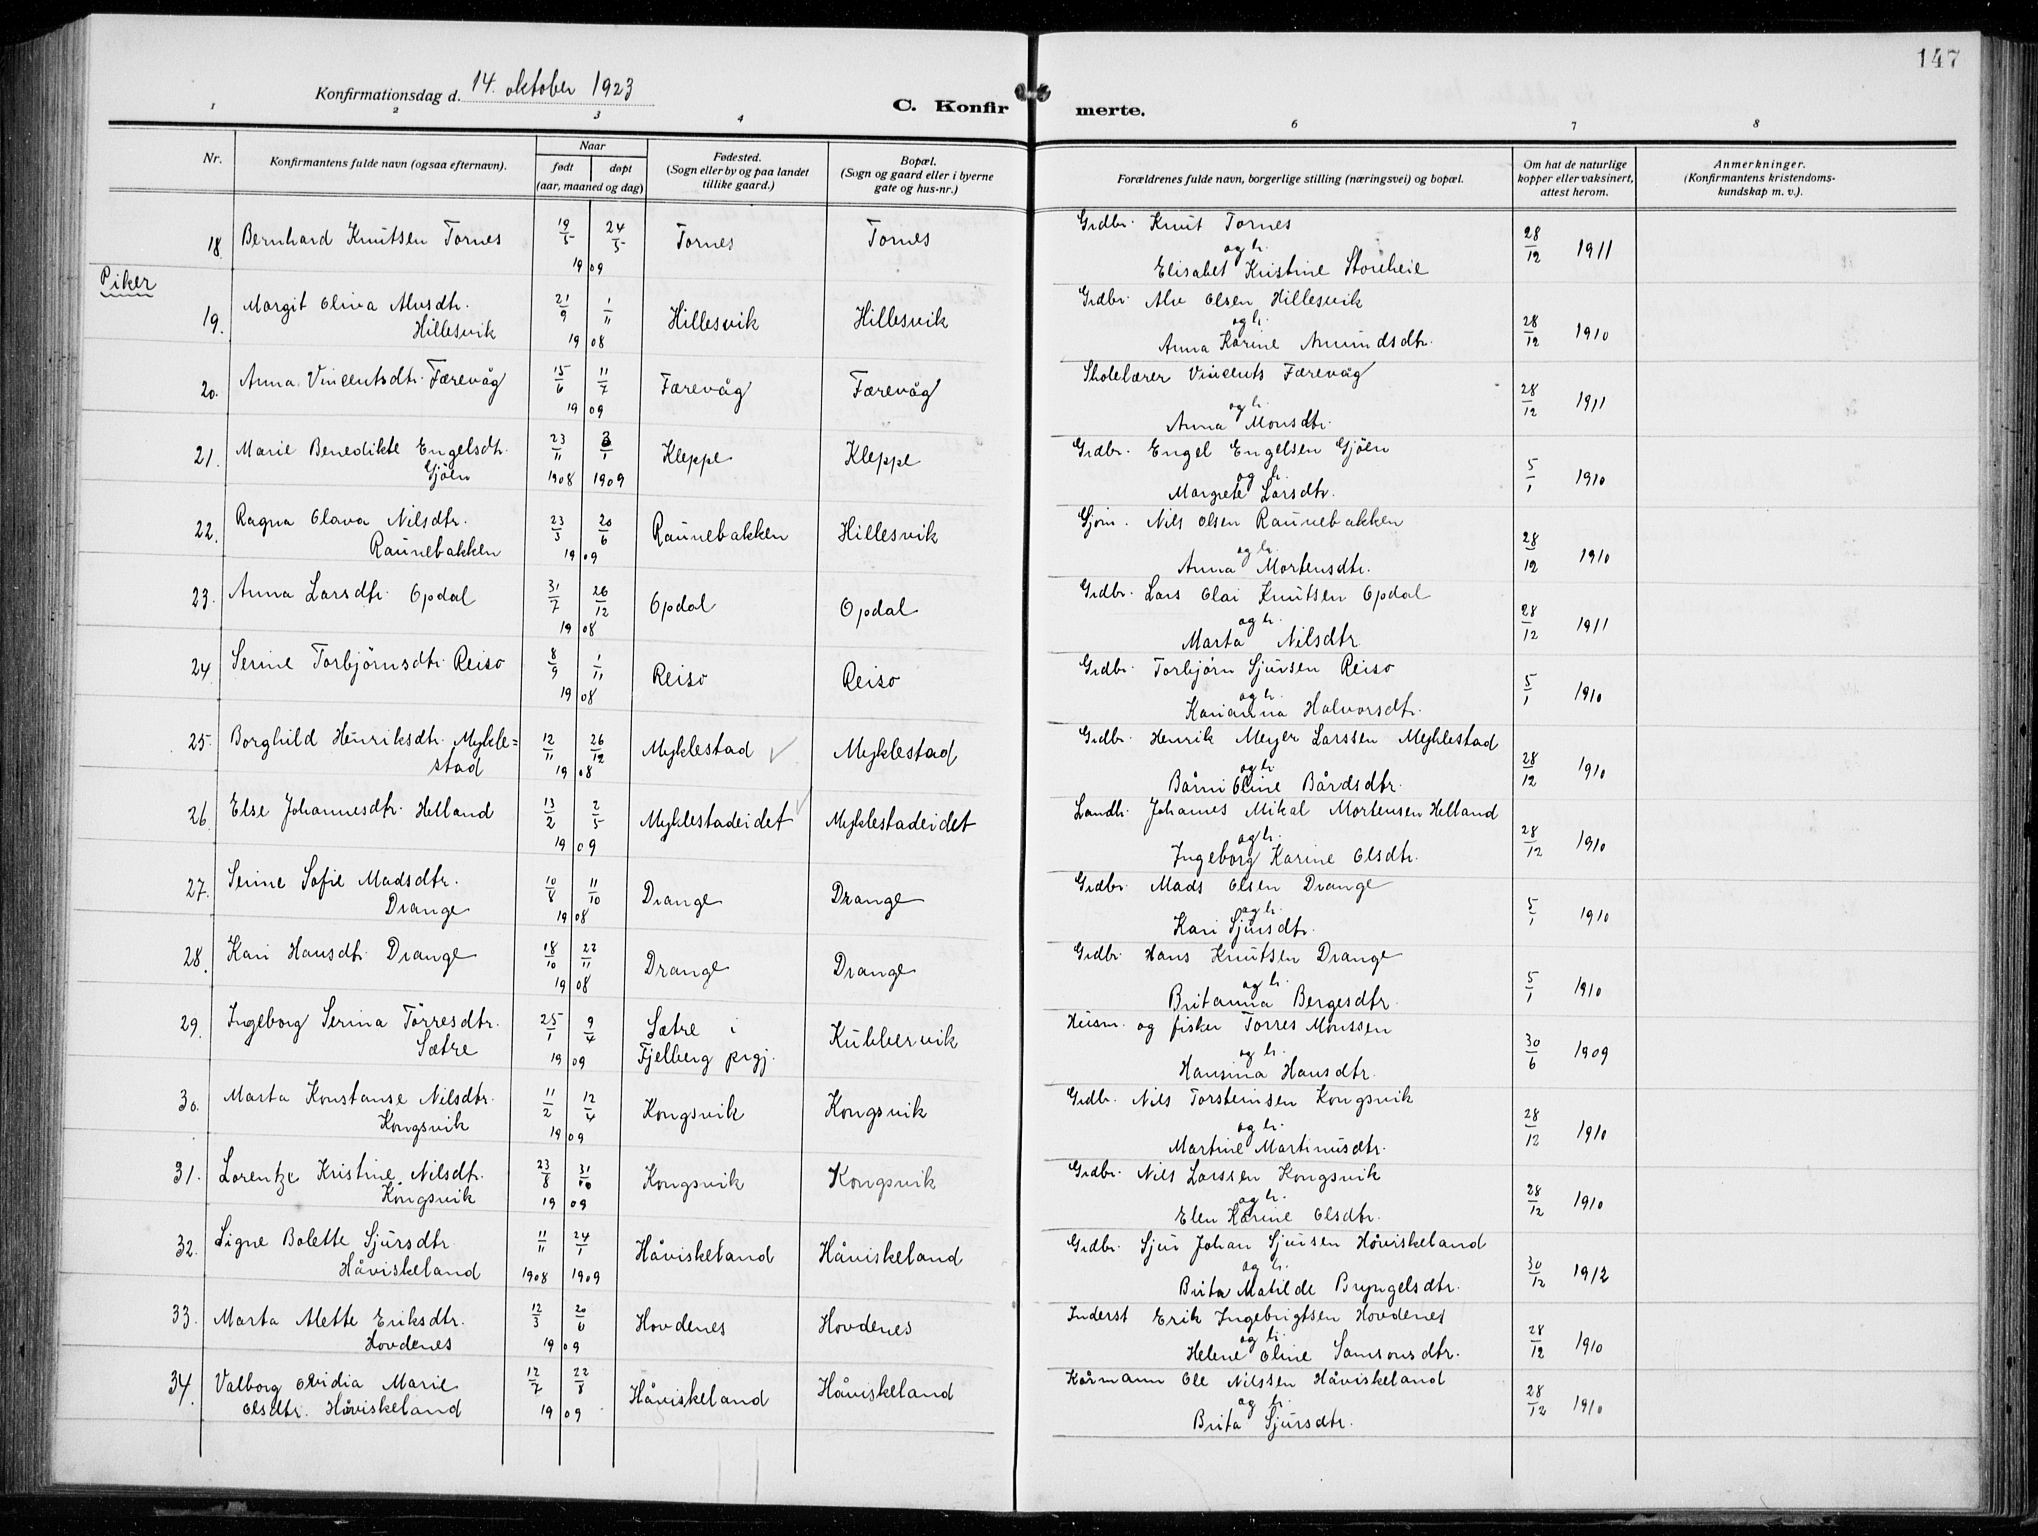 147
Konfirmationsdag d. 14. oktober 1923
C. Konfirmerte.
1 2 3 4 6 7 8
Nr.
Konfirmantens fulde navn (ogsaa efternavn).
Naar
født døpt
(aar, maaned og dag)
Fødested.
(Sogn eller by og paa landet
tillike gaard.)
Bopæl.
(Sogn og gaard eller i byerne
gate og hus-nr.)
Forældrenes fulde navn, borgerlige stilling (næringsvei) og bopæl.
Om hat de naturlige
kopper eller vaksinert,
attest herom.
Anmerkninger.
(Konfirmantens kristendoms-
kundskap m. v.).
18. Bernhard Knutsen Tornes 19/5 24/5 1909 Tornes Tornes Grdbr. Knut Tornes
og h.
Elisabet Kristine Storeheie 28/12 1911
Piker
19. Margit Oliva Alvsdtr.
Hillesvik 21/9 1/11 1908 Hillesvik Hillesvik Grdbr. Alv Olsen Hillesvik
og h.
Anna Karine Amundsdtr. 28/12 1910
20. Anna Vincentsdtr. Færevåg 15/6 11/7 1909 Færevåg Færevåg Skolelærer Vincents Færevåg
og h.
Anna Monsdtr. 28/12 1911
21. Marie Benedikte Engelsdtr.
Gjöen 23/11 1908 3/1 1909 Kleppe Kleppe Grdbr. Engel Engelsen Gjöen
og h.
Margrete Larsdtr. 5/1 1910
22. Ragna Olava Nilsdtr.
Raunebakken 23/3 20/6 1909 Raunebakken Hillesvik Gjöm. Nils Olsen Raunebakken
og h.
Anna Mortensdtr. 28/12 1910
23. Anna Larsdtr. Opdal 31/7 26/12 1908 Opdal Opdal Grdbr. Lars Olai Knutsen Opdal
og h.
Marta Nilsdtr. 28/12 1911
24. Serine Torbjørnsdtr. Reisø 8/9 1/11 1908 Reisø Reisø Grdbr. Torbjørn Sjursen Reisø
og h.
Karianna Halvorsdtr. 5/1 1910
25. Borghild Henriksdtr. Mykle=
stad 12/11 26/12 1908 Myklestad Myklestad Grdbr. Henrik Meyer Larssen Myklestad
og h.
Bårni Oline Bårdsdtr. 28/12 1910
26. Else Johannesdtr. Helland 13/2 2/5 1909 Myklestadeidet Myklestadeidet Landh. Johannes Mikal Mortensen Helland
og h.
Ingeborg Karine Olsdtr. 28/12 1910
27. Serine Sofie Madsdtr.
Drange 10/8 11/10 1908 Drange Drange Grdbr. Mads Olsen Drange
og h.
Kari Sjursdtr. 5/1 1910
28. Kari Hansdtr. Drange 18/10 22/11 1908 Drange Drange Grdbr. Hans Knutsen Drange
og h.
Britanna Bergesdtr. 5/1 1910
29. Ingeborg Serina Törresdtr.
Sætre 25/1 9/4 1909 Sætre i
Fjelberg prgj. Kubbervik Husm. og fisker Torres Monssen
og h.
Hansina Hansdtr. 30/6 1909
30. Marta Konstanse Nilsdtr.
Kongsvik 11/2 12/4 1909 Kongsvik Kongsvik Grdb. Nils Torsteinsen Kongsvik
og h.
Martine Martinusdtr. 28/12 1910
31. Lorentze Kristine Nilsdtr.
Kongsvik 23/8 31/10 1909 Kongsvik Kongsvik Grdbr. Nils Larssen Kongsvik
og h.
Elen Karine Olsdtr. 28/12 1910
32. Signe Bolette Sjursdtr.
Håviskeland 11/11 1908 24/1 1909 Håviskeland Håviskeland Grdbr. Sjur Johan Sjursen Håviskeland
og h.
Brita Matilde Bryngelsdtr. 30/12 1912
33. Marta Alette Eriksdtr.
Hovdenes 12/3 20/6 1909 Hovdenes Hovdenes Inderst Erik Ingebrigtsen Hovdenes
og h.
Helene Oline Samsonsdtr. 28/12 1910
34. Valborg Ovidia Marie
Olsdtr. Håviskeland 12/7 22/8 1909 Håviskeland Håviskeland Kårmann Ole Nilssen Håviskeland
og h.
Brita Sjursdtr. 28/12 1910